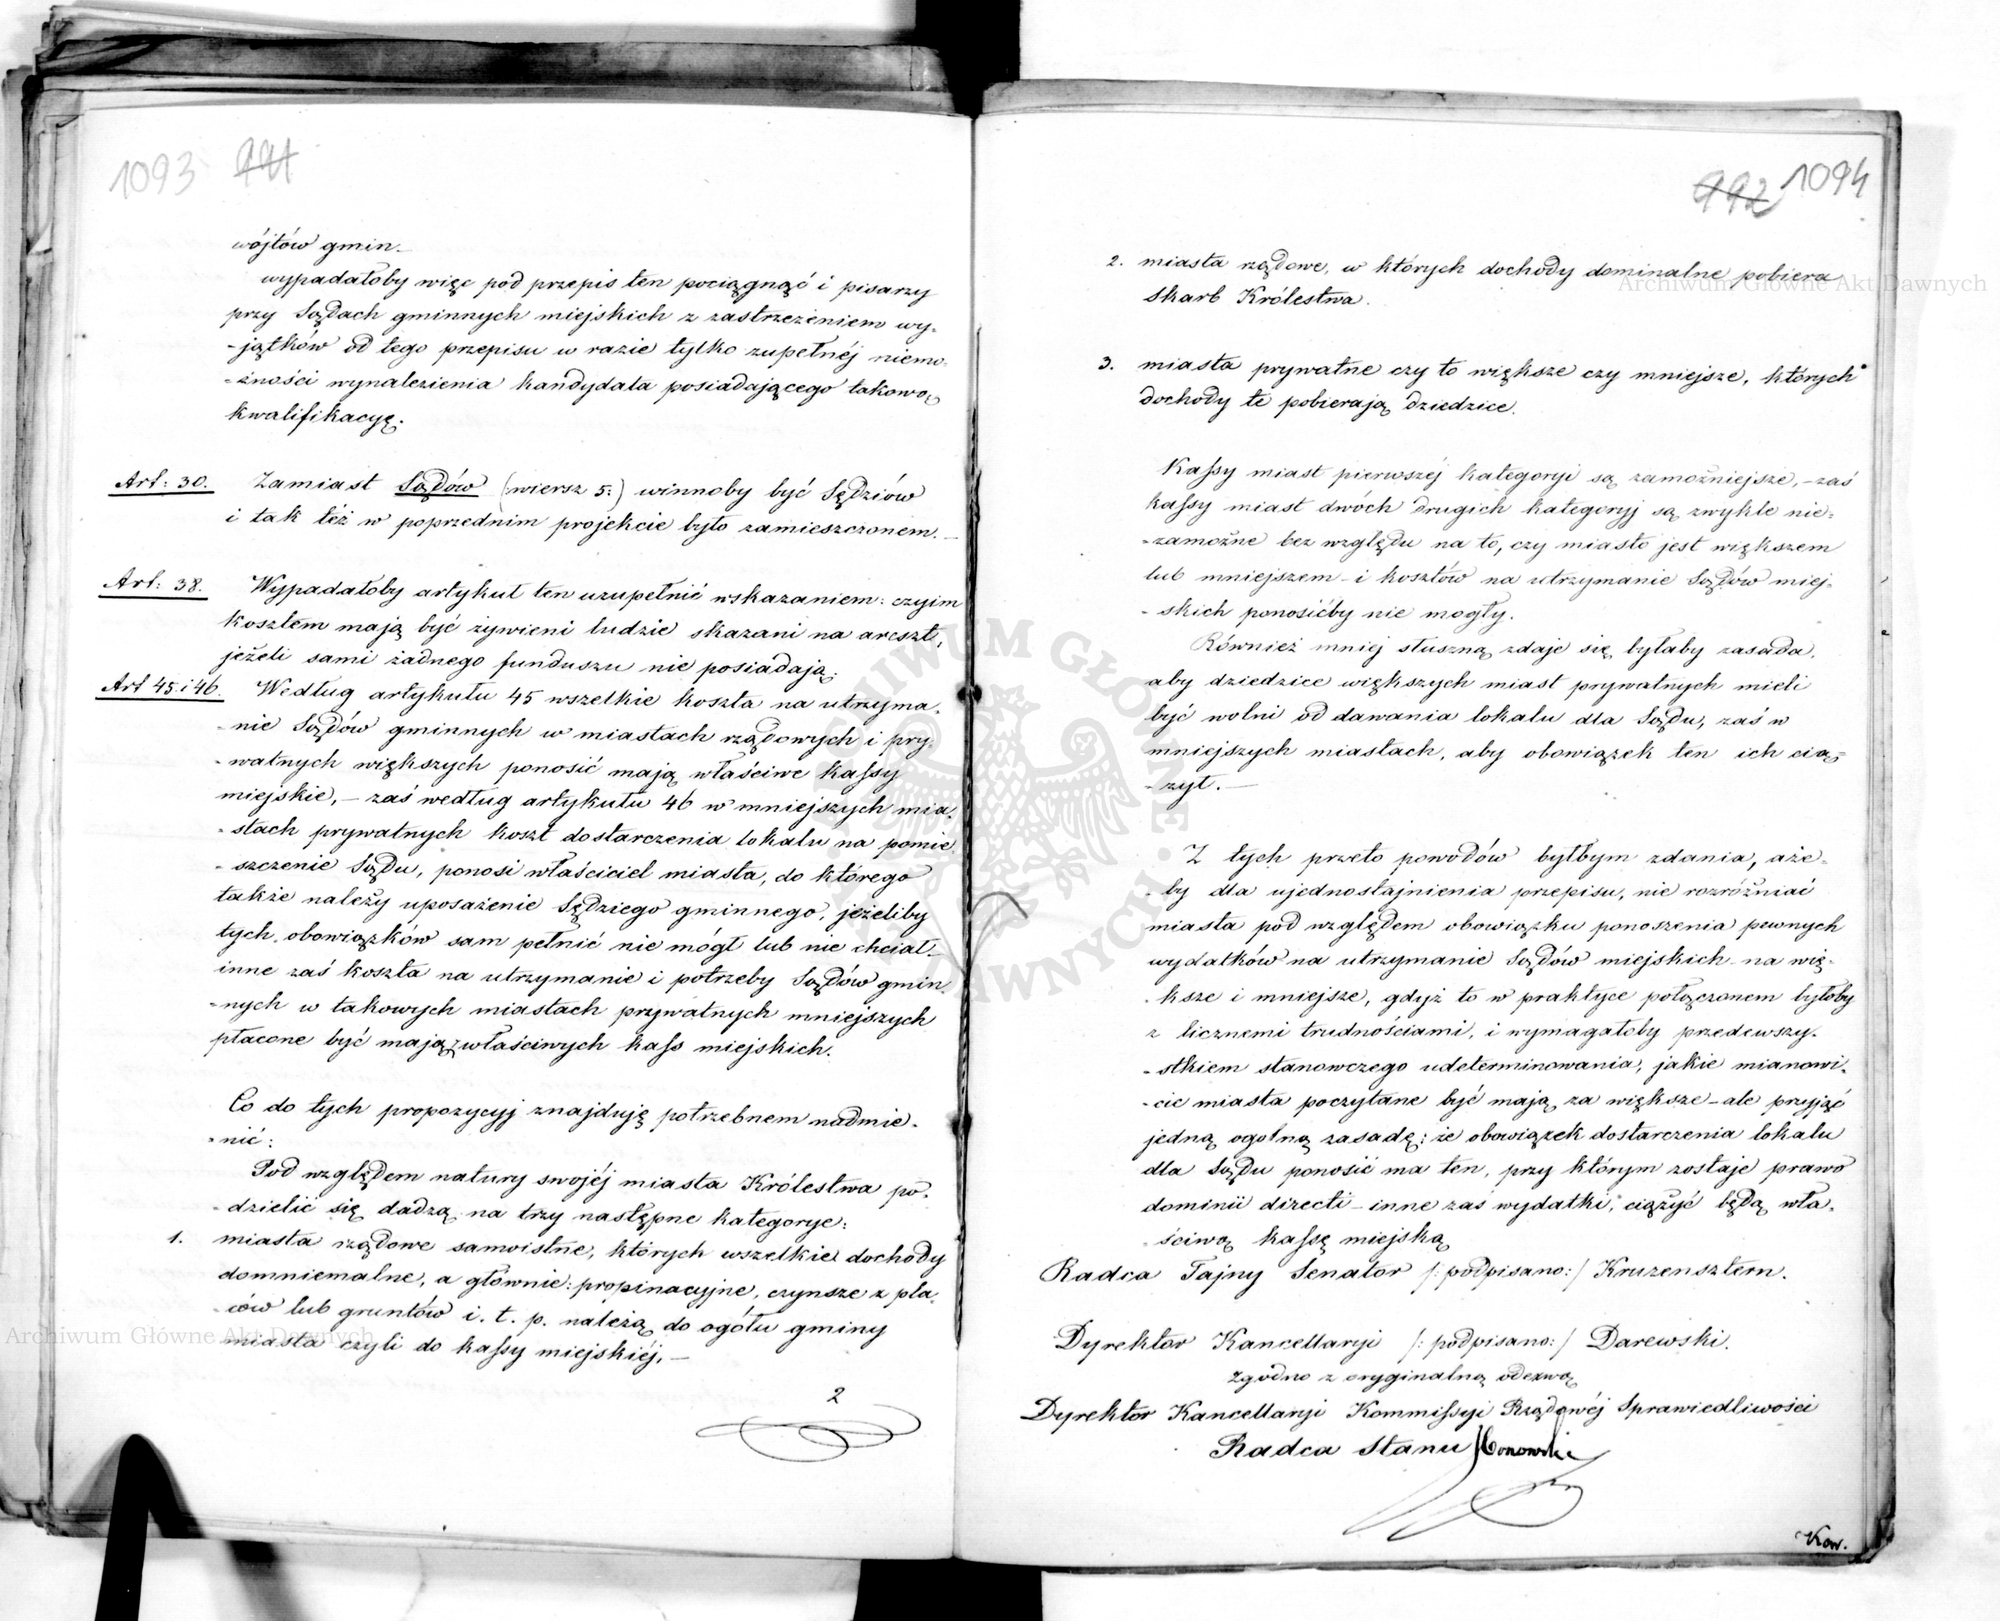 1093 991
wójtów gmin.
wypadałoby więc pod przepis ten pociągnąć i pisarzy
przy Sądach gminnych miejskich z zastrzeżeniem wy-
-jątków od tego przepisu w razie tylko zupełnéj niemo-
-żności wynalezienia kandydata posiadającego takową
kwalifikacyę.
Art: 30. Zamiast Sądów (wiersz 5:) winnoby być Sędziów
i tak téż w poprzednim projekcie było zamieszczonem. —
Art: 38. Wypadałoby artykuł ten uzupełnić wskazaniem: czyim
kosztem mają być żywieni ludzie skazani na areszt,
jeżeli sami żadnego funduszu nie posiadają.
Art 45 i 46. Według artykułu 45 wszelkie koszta na utrzyma-
-nie Sądów gminnych w miastach rządowych i pry-
-watnych większych ponosić mają właściwe Kassy
miejskie, — zaś według artykułu 46 w mniejszych mia-
-stach prywatnych koszt dostarczenia lokalu na pomie-
-szczenie Sądu, ponosi właściciel miasta, do którego
także należy uposażenie Sędziego gminnego, jeżeliby
tych obowiązków sam pełnić nie mógł lub nie chciał —
inne zaś koszta na utrzymanie i potrzeby Sądów gmin-
-nych w takowych miastach prywatnych mniejszych
płacone być mają z właściwych kass miejskich.
Co do tych propozycyj znajduję potrzebnem nadmie-
-nić:
Pod względem natury swojéj miasta Królestwa po-
-dzielić się dadzą na trzy następne kategorye:
1. miasta rządowe samoistne, których wszelkie dochody
domniemalne, a głównie: propinacyjne, czynsze z pla-
-ców lub gruntów i. t. p. należą do ogółu gminy
miasta czyli do kassy miejskiéj. —
2
992 1094
2. miasta rządowe, w których dochody dominalne pobiera
Skarb Królestwa.
3. miasta prywatne czy to większe czy mniejsze, których
dochody te pobierają dziedzice.
Kassy miast pierwszéj kategoryi są zamożniejsze, — zaś
kassy miast dwóch drugich kategoryj są zwykle nie-
-zamożne bez względu na to, czy miasto jest większem
lub mniejszem — i kosztów na utrzymanie Sądów miej-
-skich ponosićby nie mogły.
Również mniej słuszną zdaje się byłaby zasada,
aby dziedzice większych miast prywatnych mieli
być wolni od dawania lokalu dla Sądu, zaś w
mniejszych miastach, aby obowiązek ten ich cią-
-żył. —
Z tych przeto powodów byłbym zdania, aże-
-by dla ujednostajnienia przepisu, nie rozróżniać
miasta pod względem obowiązku ponoszenia pewnych
wydatków na utrzymanie Sądów miejskich na wię-
-ksze i mniejsze, gdyż to w praktyce połączonem byłoby
z licznemi trudnościami, i wymagałoby przedewszy-
-stkiem stanowczego udeterminowania, jakie mianowi-
-cie miasta poczytane być mają za większe — ale przyjąć
jedną ogolną zasadę: że obowiązek dostarczenia lokalu
dla Sądu ponosić ma ten, przy którym zostaje prawo
dominii directi — inne zaś wydatki, ciążyć będą wła-
-ściwą kassę miejską
Radca Tajny Senator /: podpisano: / Kruzensztern.
Dyrektor Kancellaryi /: podpisano: / Darewski.
zgodno z oryginalną odezwą
Dyrektor Kancellaryi Kommissyi Rządowéj Sprawiedliwości
Radca Stanu
Kow.
Archiwum Główne Akt Dawnych
Archiwum Główne Akt Dawnych
ARCHIWUM GŁÓWNE AKT DAWNYCH